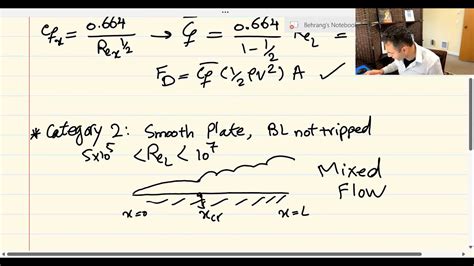 Cfx = 0.664 / Rex^½ → C̄f = 0.664 / 1-½ ReL =
Behrang's Notebook
FD = C̄f (½ ρV²) A ✓
* Category 2: Smooth Plate, BL not tripped
5×10⁵ < ReL < 10⁷
Mixed
Flow
x=0 xcr x=L